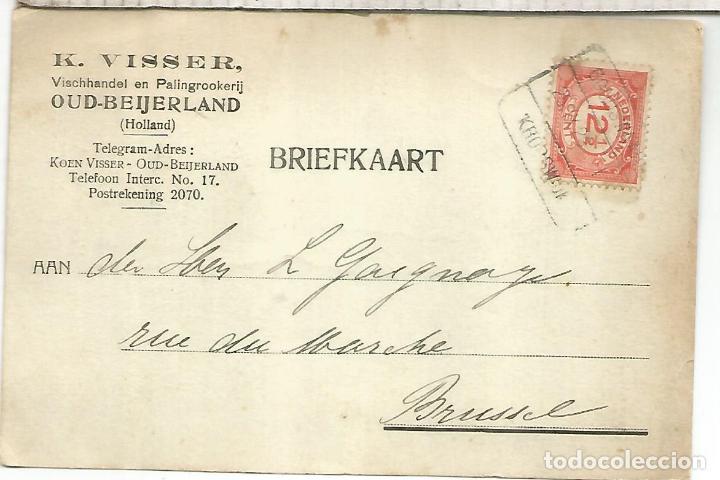 K. VISSER,
Vischhandel en Palingrookerij
OUD-BEIJERLAND
(Holland)
Telegram-Adres:
KOEN VISSER - OUD-BEIJERLAND
Telefoon Interc. No. 17.
Postrekening 2070.
BRIEFKAART
NEDERLAND
CENT
AAN den Heer L
rue du Marche
Brussel
todocoleccion.net